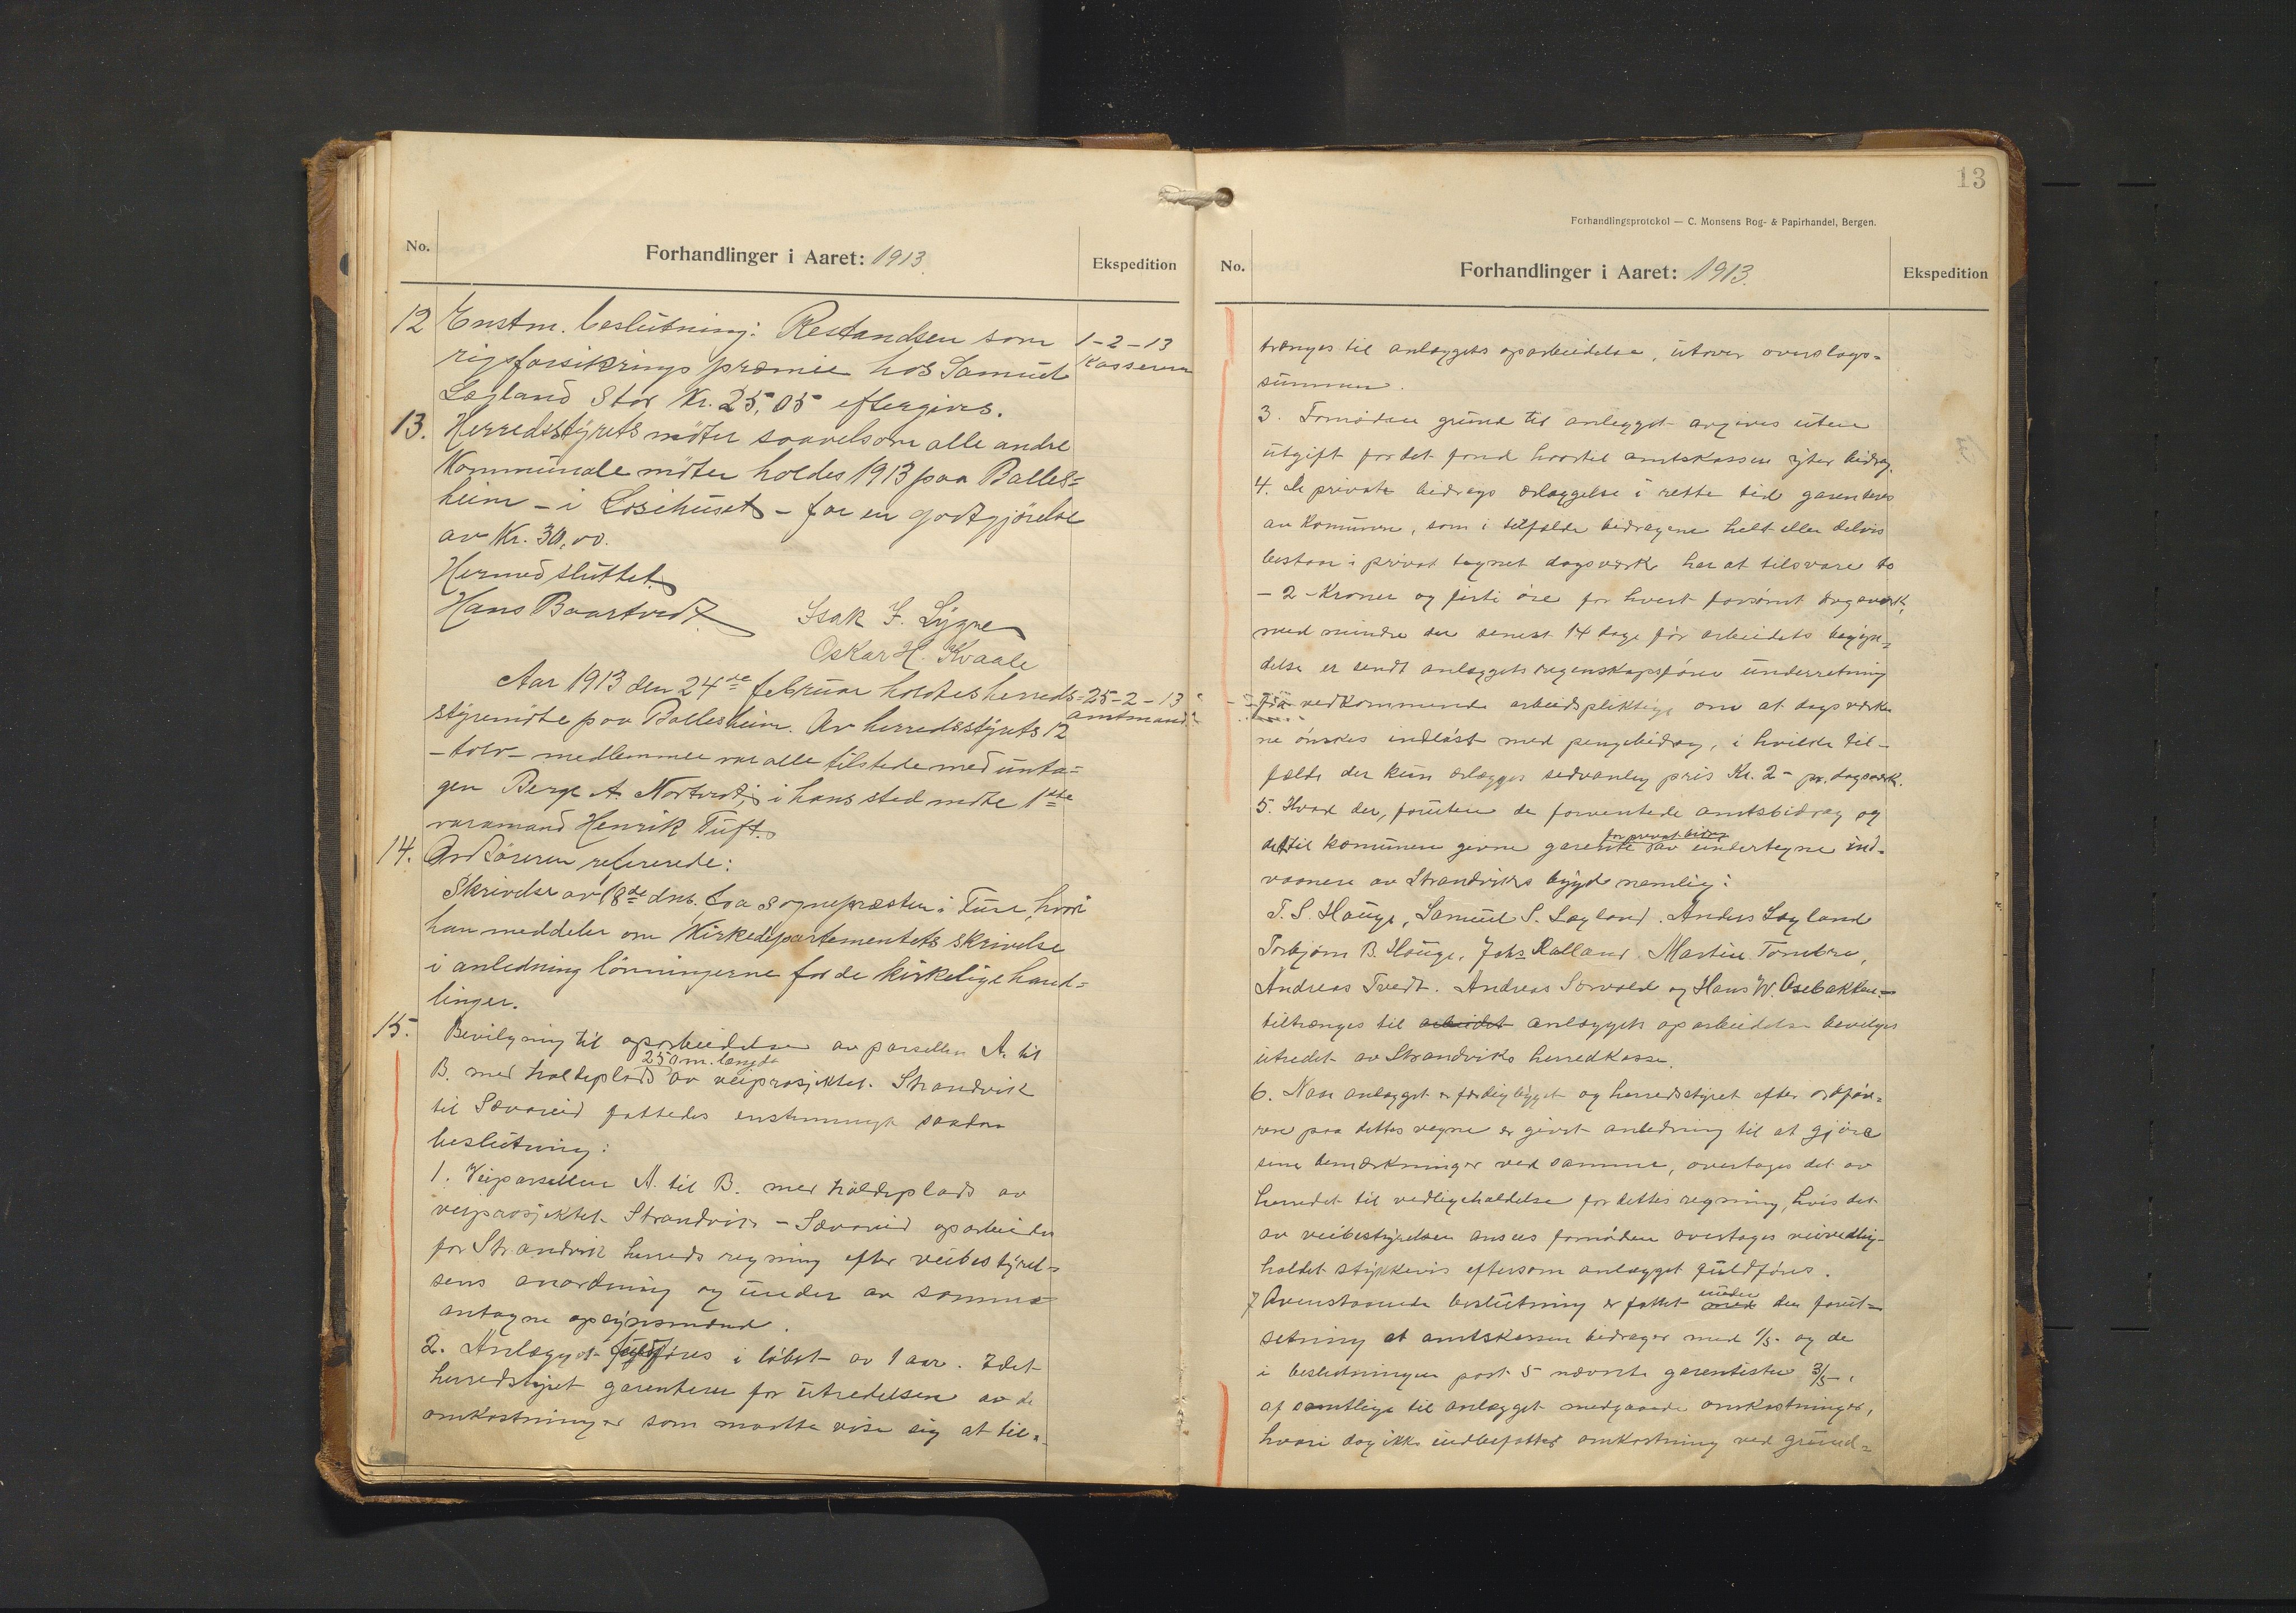 No.
Forhandlinger i Aaret: 1913.
Ekspedition
12 Enstm. beslutning: Restandsen som
1-2-13
rigsforsikringspræmie hos Samuel
Kasseren
Lægland stor Kr. 25,05 eftergives.
13. Herredsstyrets møter saavelsom alle andre
Kommunale møter holdes 1913 paa Balles=
heim - i Losihuset - for en godtgjörelse
av Kr. 30,00.
Hermed sluttet.
Hans Baartvedt
Isak J. Lygre
Oskar H. Kvaale
Aar 1913 den 24de februar holdtes herreds=
25-2-13
styremöte paa Ballesheim. Av herredsstyrets 12
amtmand.
- tolv - medlemmer var alle tilstede med unta=
gen Berge A. Nortvedt, i hans sted mötte 1ste
varamand Henrik Tuft.
14. Ordföreren refererede:
Skrivelse av 18de dns. fra sognepræsten i Fuse, hvori
han meddeler om Kirkedepartementets skrivelse
i anledning lönningerne for de kirkelige hand=
linger.
15. Bevilgning til oparbeidelse av parsellen A. til
250 m. længde
B. med holdeplads av veiprosjektet Strandvik
til Sævareid fattedes enstemmigt saadan
beslutning:
1. Veiparsellen A. til B. med holdeplads av
veiprosjektet Strandvik - Sævareid oparbeides
for Strandvik herreds regning efter veibestyrel=
sens anordning og under av samme
antagne opsynsmænd.
2. Anlægget fuldföres i löbet av 1 aar. Idet
herredstyret garenterer for utredelsen av de
omkostninger som maatte vise sig at til=
13
Forhandlingsprotokol — C. Monsens Bog- & Papirhandel, Bergen.
No.
Forhandlinger i Aaret: 1913.
Ekspedition
trænges til anlæggets oparbeidelse, utover overslags=
summen.
3. Fornöden grund til anlægget avgives uten
utgift for det fond hvortil amtskassen yter bidrag.
4. De private bidrags erlæggelse i rette tid garenteres
av komunen, som i tilfælde bidragene helt eller delvis
bestaar i privat tegnet dagsværk har at tilsvare to
- 2 - Kroner og firti öre for hvert forsömt dagsværk,
med mindre der senest 14 dage för arbeidets begyn=
delse er sendt anlæggets regenskapsförer underretning
fra vedkommende arbeidspliktige om at dagsværke
ne önskes indlöst med pengebidrag, i hvilke til-
fælde der kun erlægges sedvanlig pris Kr. 2- pr. dagsværk.
5. Hvad der, foruten de forventede amtsbidrag og
for privat bidrag
det til komunen givne garenti av undertegne ind-
vaanere av Strandviks bygde nemlig:
T. S. Hauge, Samuel S. Lægland. Anders Lægland
Torbjörn B. Hauge, Johs Kalland. Martin Tombre,
Andreas Tvedt. Andreas Sorvald og Hans W. Osebakken.-
tiltrænges til arbeidet anlæggets oparbeidelse bevilges
utredet av Strandviks herredkasse.
6. Naar anlægget er færdigbygget og herredsstyret efter ordföre=
ren paa dettes vegne er givet anledning til at gjöre
sine bemærkninger ved samme, overtages det av
herredet til vedligeholdelse for dettes regning, hvis det
av veibestyrelsen ansees fornöden overtages veivedlig-
holdet stykkevis eftersom anlægget fuldföres.
under
7 Ovenstaaende beslutning er fattet med den forut=
setning at amtskassen bidrager med 1/5 og de
i beslutningen post 5 nævnte garentister 3/5,
af samtlige til anlægget medgaaede omkostninger,
hvori dog ikke indbefattes omkostning ved grund=